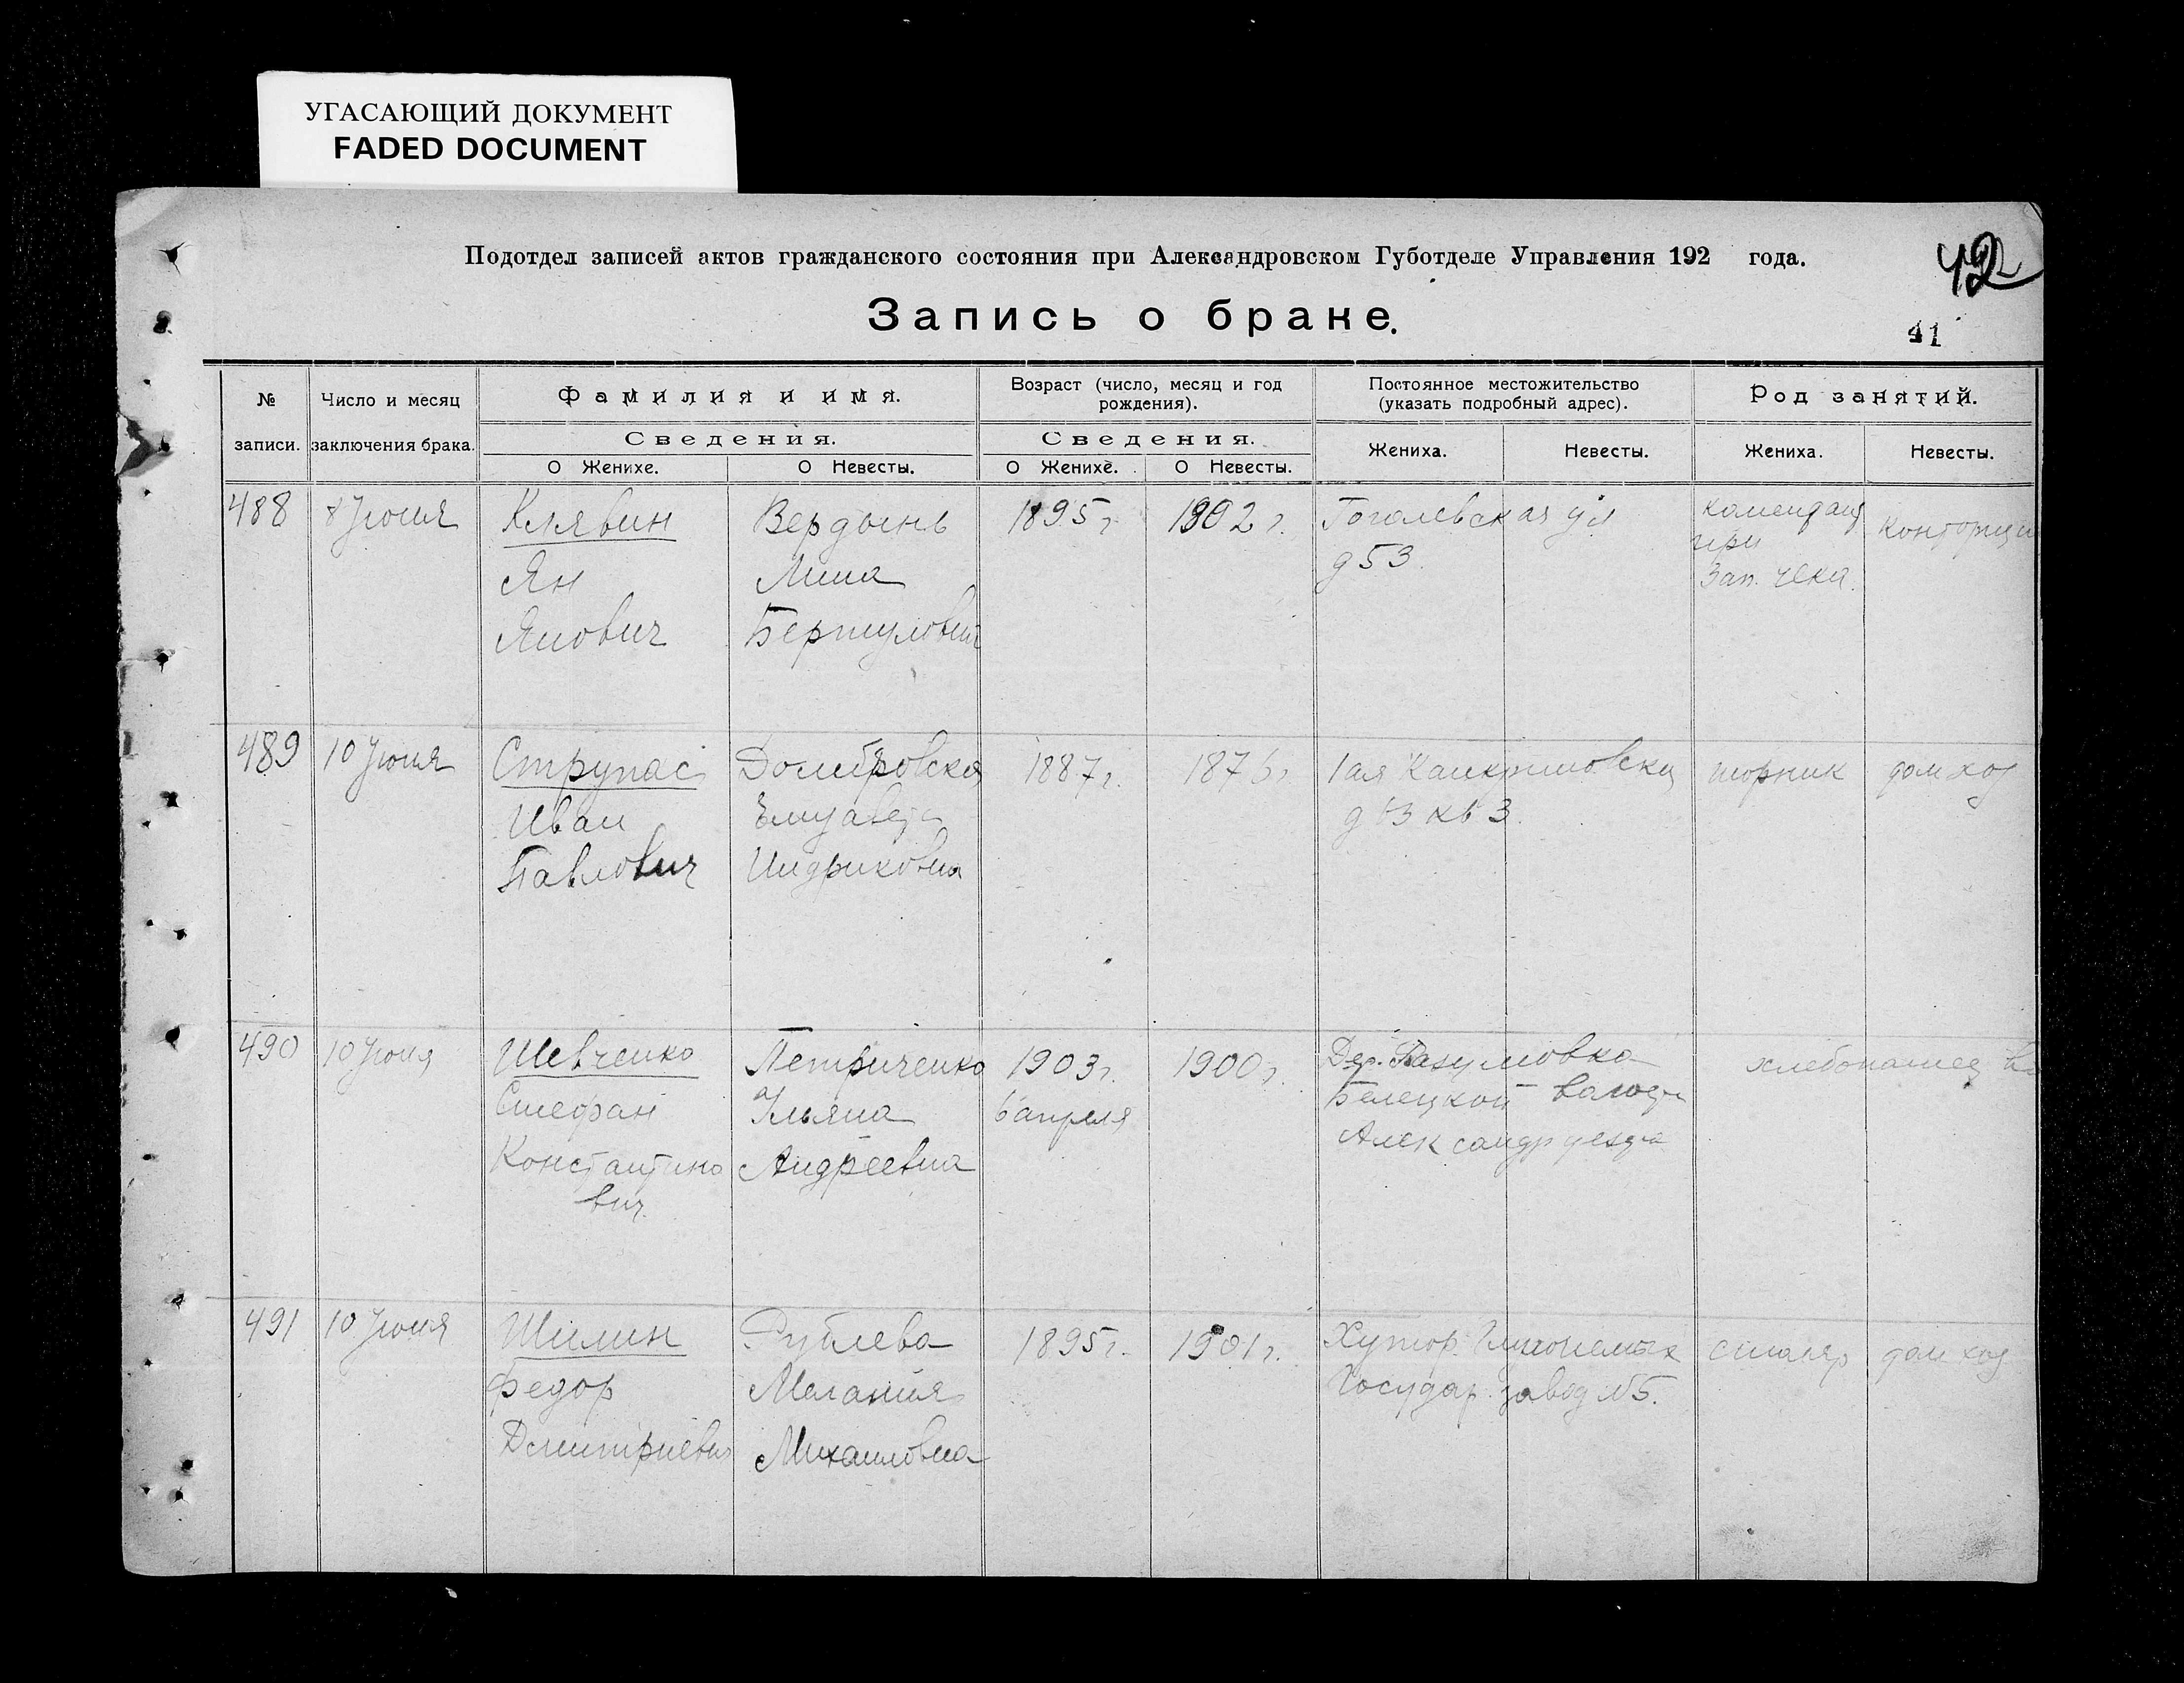 УГАСАЮЩИЙ ДОКУМЕНТ
FADED DOCUMENT
Подотдел записей актов гражданского состояния при Александровском Губотделе Управления 192 года.
42
Запись о браке.
41
№ записи.
Число и месяц заключения брака.
Фамилия и имя.
Сведения.
О Женихе.
О Невесты.
Возраст (число, месяц и год рождения).
Сведения.
О Женихе.
О Невесты.
Постоянное местожительство (указать подробный адрес).
Жениха.
Невесты.
Род занятий.
Жениха.
Невесты.
488
8 Июня
Клявин
Ян
Янович
Вердынь
Мина
1895 г
1902 г.
Гоголевская ул
д 53.
комендант
при
Зап. чека.
489
10 Июня
Струпас
Иван
Павлович
Домбровска
Елизавета
Индриковна
1887 г.
1876 г
1ая
3.
дом хоз
490
10 Июня
Шевченко
Стефан
Константино
вич
Петриченко
Ульяна
Андреевна
1903 г.
6 апреля
1900 г.
Дер. Разумовка
Белецкой волости
Александр уезда
хлебопашец
491
10 Июня
Шилин
Федор
Дмитриевич
Рублева
Мелания
Михайловна
1895 г.
1901 г.
Хутор Глухонемых
Государ. завод № 5.
столяр
дом хоз